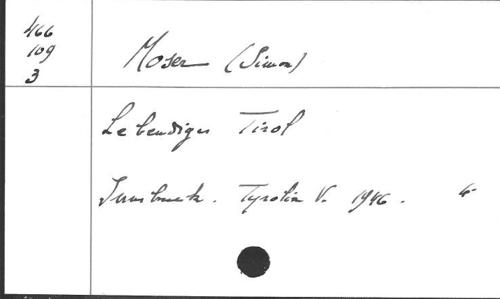 466
109
3
Moser (Simon)
Lebendiges Tirol
Innsbruck. Tyrolia V. 1946.